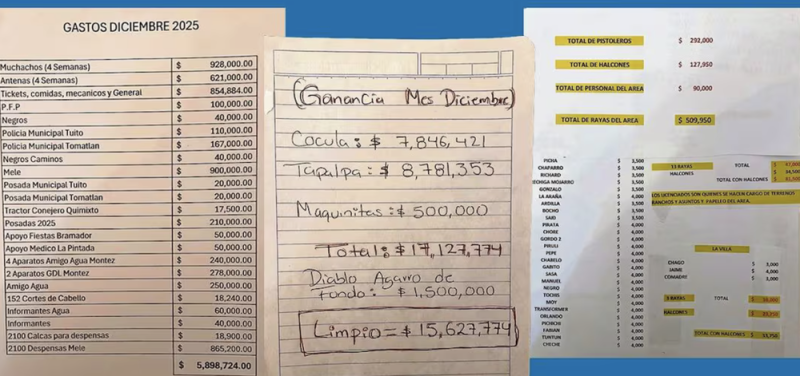 GASTOS DICIEMBRE 2025
Muchachos (4 Semanas) $ 928,000.00
Antenas (4 Semanas) $ 621,000.00
Tickets, comidas, mecanicos y General $ 854,884.00
P.F.P $ 100,000.00
Negros $ 40,000.00
Policia Municipal Tuito $ 110,000.00
Policia Municipal Tomatlan $ 167,000.00
Negros Caminos $ 40,000.00
Mele $ 900,000.00
Posada Municipal Tuito $ 20,000.00
Posada Municipal Tomatlan $ 20,000.00
Tractor Conejero Quimixto $ 17,500.00
Posadas 2025 $ 210,000.00
Apoyo Fiestas Bramador $ 50,000.00
Apoyo Medico La Pintada $ 50,000.00
4 Aparatos Amigo Agua Montez $ 240,000.00
2 Aparatos GDL Montez $ 278,000.00
Amigo Agua $ 250,000.00
152 Cortes de Cabello $ 18,240.00
Informantes Agua $ 60,000.00
Informantes $ 40,000.00
2100 Calcas para despensas $ 18,900.00
2100 Despensas Mele $ 865,200.00
$ 5,898,724.00
(Ganancia Mes Diciembre)
Cocula: $ 7,846,421
Tapalpa: $ 8,781,353
Maquinitas: $ 500,000
Total: $ 17,127,774
Diablo Agarro de
fondo: $ 1,500,000
Limpio = $ 15,627,774
TOTAL DE PISTOLEROS $ 292,000
TOTAL DE HALCONES $ 127,950
TOTAL DE PERSONAL DEL AREA $ 90,000
TOTAL DE RAYAS DEL AREA $ 509,950
PICHA $ 3,500
CHAPARRO $ 3,500
RICHARD $ 3,500
ECHIGA MOJARRO $ 3,500
GONZALO $ 3,500
LA ARAÑA $ 4,000
ARDILLA $ 3,500
BOCHO $ 3,500
SAID $ 3,500
PIRATA $ 4,000
CHORE $ 4,000
GORDO 2 $ 4,000
PIRULI $ 4,000
PEPE $ 4,000
CHABELO $ 4,000
GABITO $ 4,000
SASA $ 4,000
MANUEL $ 4,000
NEGRO $ 4,000
TOCHIS $ 4,000
MOY $ 4,000
TRANSFORMER $ 4,000
ORLANDO $ 4,000
PICHICHI $ 4,000
FABIAN $ 4,000
TUNTUN $ 4,000
CHECHE $ 4,000
13 RAYAS TOTAL $
HALCONES $
TOTAL CON HALCONES $
LOS LICENCIADOS SON QUIENES SE HACEN CARGO DE TERRENOS
RANCHOS Y ASUNTOS Y PAPELEO DEL AREA.
LA VILLA
CHAGO $ 3,000
JAIME $ 4,000
COMADRE $ 3,000
3 RAYAS TOTAL $
HALCONES $
TOTAL CON HALCONES $